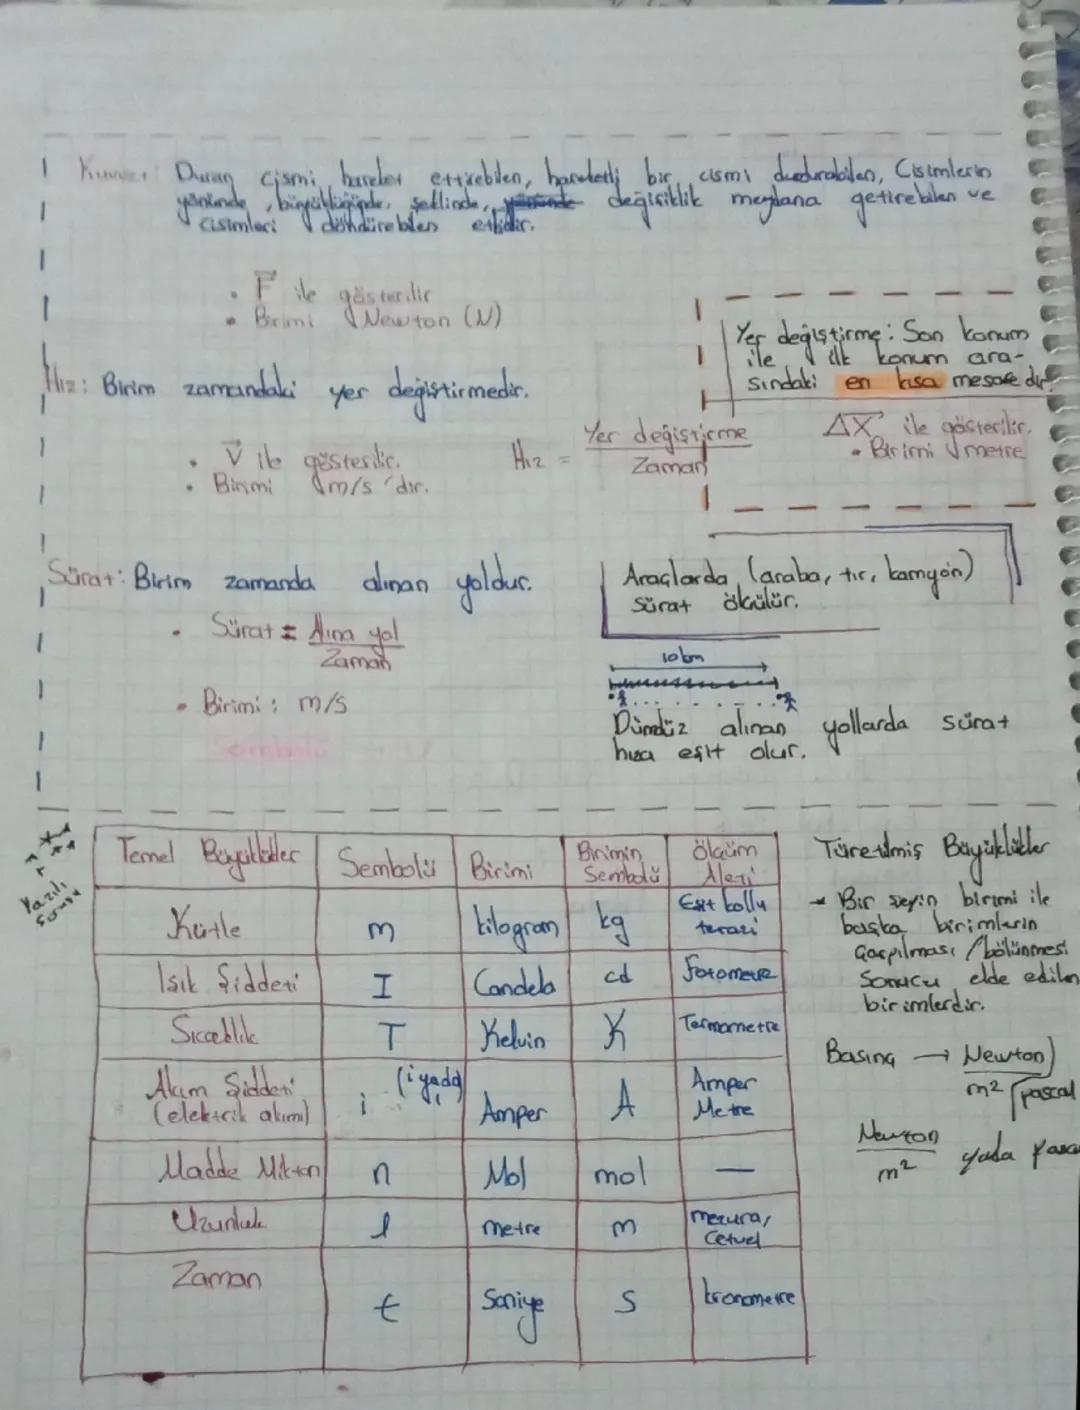 Kuvvet: Duran cismi hareket ettirebilen, hareketli bir cismi durdurabilen, Cisimlerin
yönünde, büyüklüğünde, şeklinde, değişiklik meydana getirebilen ve
cisimleri döndürebilen etkidir.
• F ile gösterilir
• Birimi Newton (N)
Yer değiştirme: Son konum
ile ilk konum ara-
sındaki en kısa mesafedir.
ΔX ile gösterilir.
• Birimi metre
Hız: Birim zamandaki yer değiştirmedir.
• V ile gösterilir.
• Birimi m/s 'dir.
Hız = Yer değiştirme
Zaman
Sürat: Birim zamanda alınan yoldur.
• Sürat = Alına yol
Zaman
• Birimi: m/s
Sembolü
Araçlarda (araba, tır, kamyon)
sürat ölçülür.
10 km
Dümdüz alınan yollarda sürat
hıza eşit olur.
Yazılı
sorusu
Temel Büyüklükler Sembolü Birimi Birimin Sembolü Ölçüm Aleti
Kütle m kilogram kg Eşit kollu terazi
Işık Şiddeti I Candela cd Fotometre
Sıcaklık T Kelvin K Termometre
Akım Şiddeti (elektrik akımı) i (i yada) Amper A Amper Metre
Madde Miktarı n Mol mol —
Uzunluk l metre m mezura, Cetvel
Zaman t Saniye s kronometre
Türetilmiş Büyüklükler
→ Bir şeyin birimi ile
başka birimlerin
çarpılması /bölünmesi
sonucu elde edilen
birimlerdir.
Basınç → Newton
m² pascal
Newton
m² yada